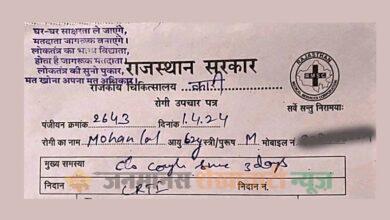 घर-घर साक्षरता ले जाएंगे।
मतदाता जागरूक बनाएंगे।
लोकतंत्र का भाग्य विधाता,
होता है जागरूक मतदाता
लोकतंत्र की सुनो पुकार,
मत खोना अपना मत अधिकार।
राजस्थान सरकार
राजकीय चिकित्सालय
रोगी उपचार पत्र
RAJASTHAN
सर्वे सन्तु निरामयाः
पंजीयन क्रमांक 2643 दिनांक 1.4.24
रोगी का नाम Mohan lal आयु 62y स्त्री/पुरूष M. मोबाइल नं.
मुख्य समस्या c/o cough since 3 days
जनमानस शेखावाटी न्यूज़
निदान URTI निदान नं.